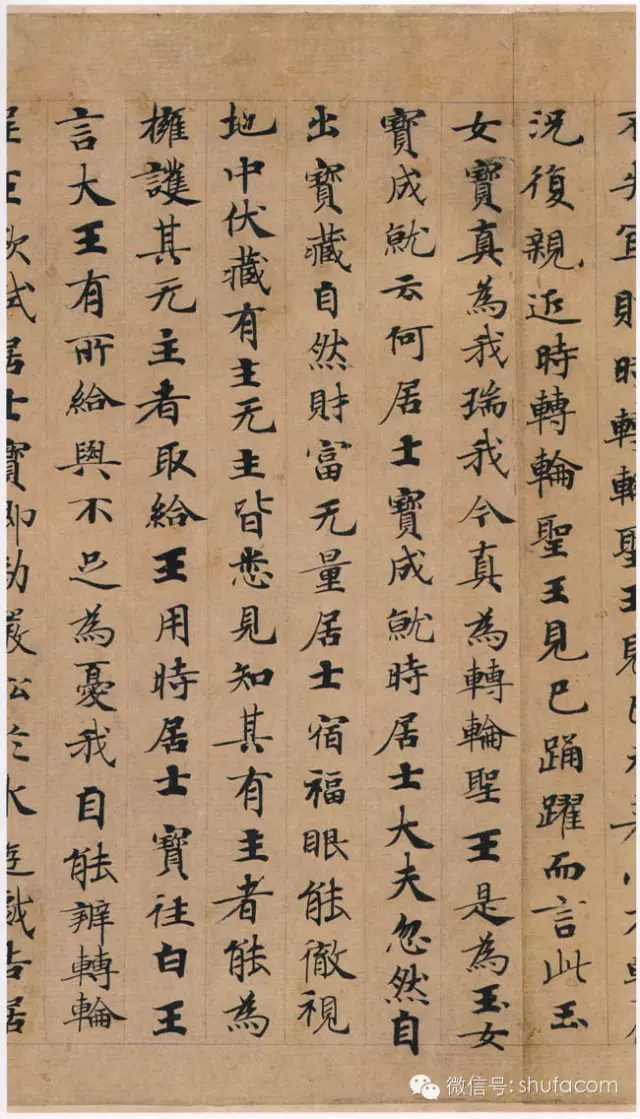 不失宜則時轉輪聖王見已
況復親近時轉輪聖王見已踊躍而言此玉
女寶真為我瑞我今真為轉輪聖王是為玉女
寶成就云何居士寶成就時居士大夫忽然自
出寶藏自然財富无量居士宿福眼能徹視
地中伏藏有主无主皆悉見知其有主者能為
擁護其无主者取給王用時居士寶往白王
言大王有所給與不足為憂我自能辨轉輪
聖王欲試居士寶即勅嚴船於水遊戲告居
微信号: shufacom